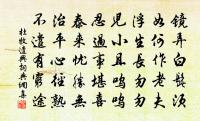 鏡弄白髭須
如何作老夫
浮生長勿勿
兒小且嗚嗚
忍過事堪喜
泰來憂勝無
治平心徑熟
不遣有窮途
杜牧遣興詞典網書